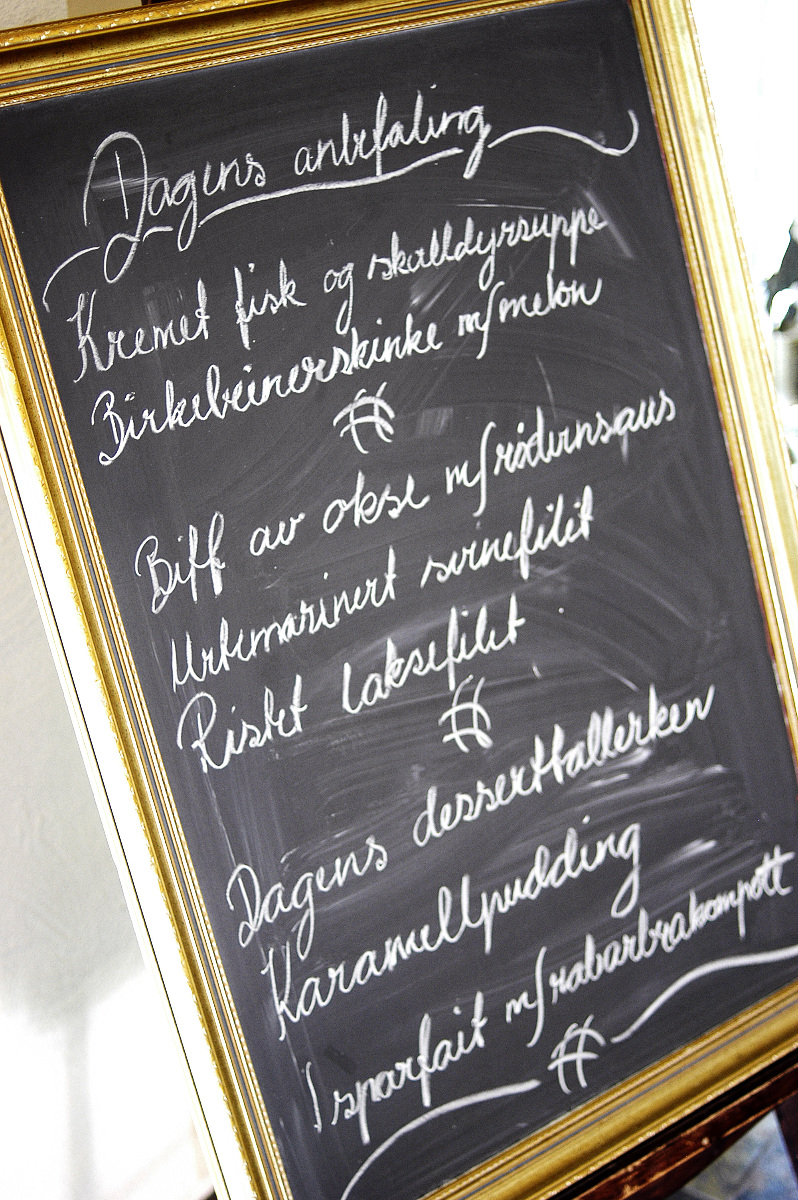 Dagens anbefaling
Kremet fisk og skalldyrsuppe
Birkebeinerskinke m/melon
Biff av okse m/rødvinsaus
Urtemarinert svinefilet
Ristet laksefilet
Dagens desserttallerken
Karamellpudding
Isparfait m/rabarbrakompott